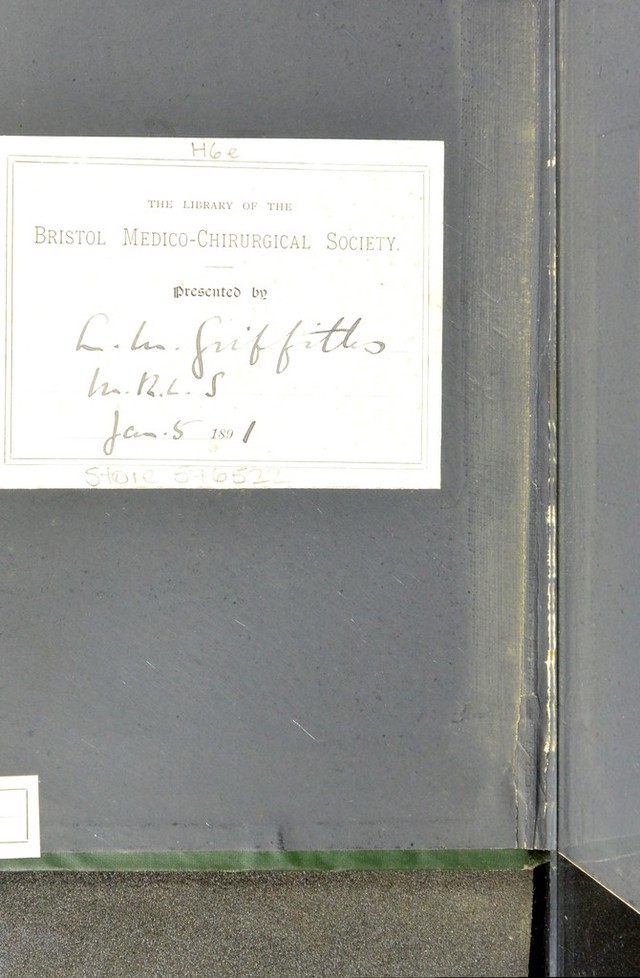 H6e
THE LIBRARY OF THE
BRISTOL MEDICO-CHIRURGICAL SOCIETY.
Presented by
L. M. Griffiths
M.R.C.S
Jan. 5 1891
Store 576522